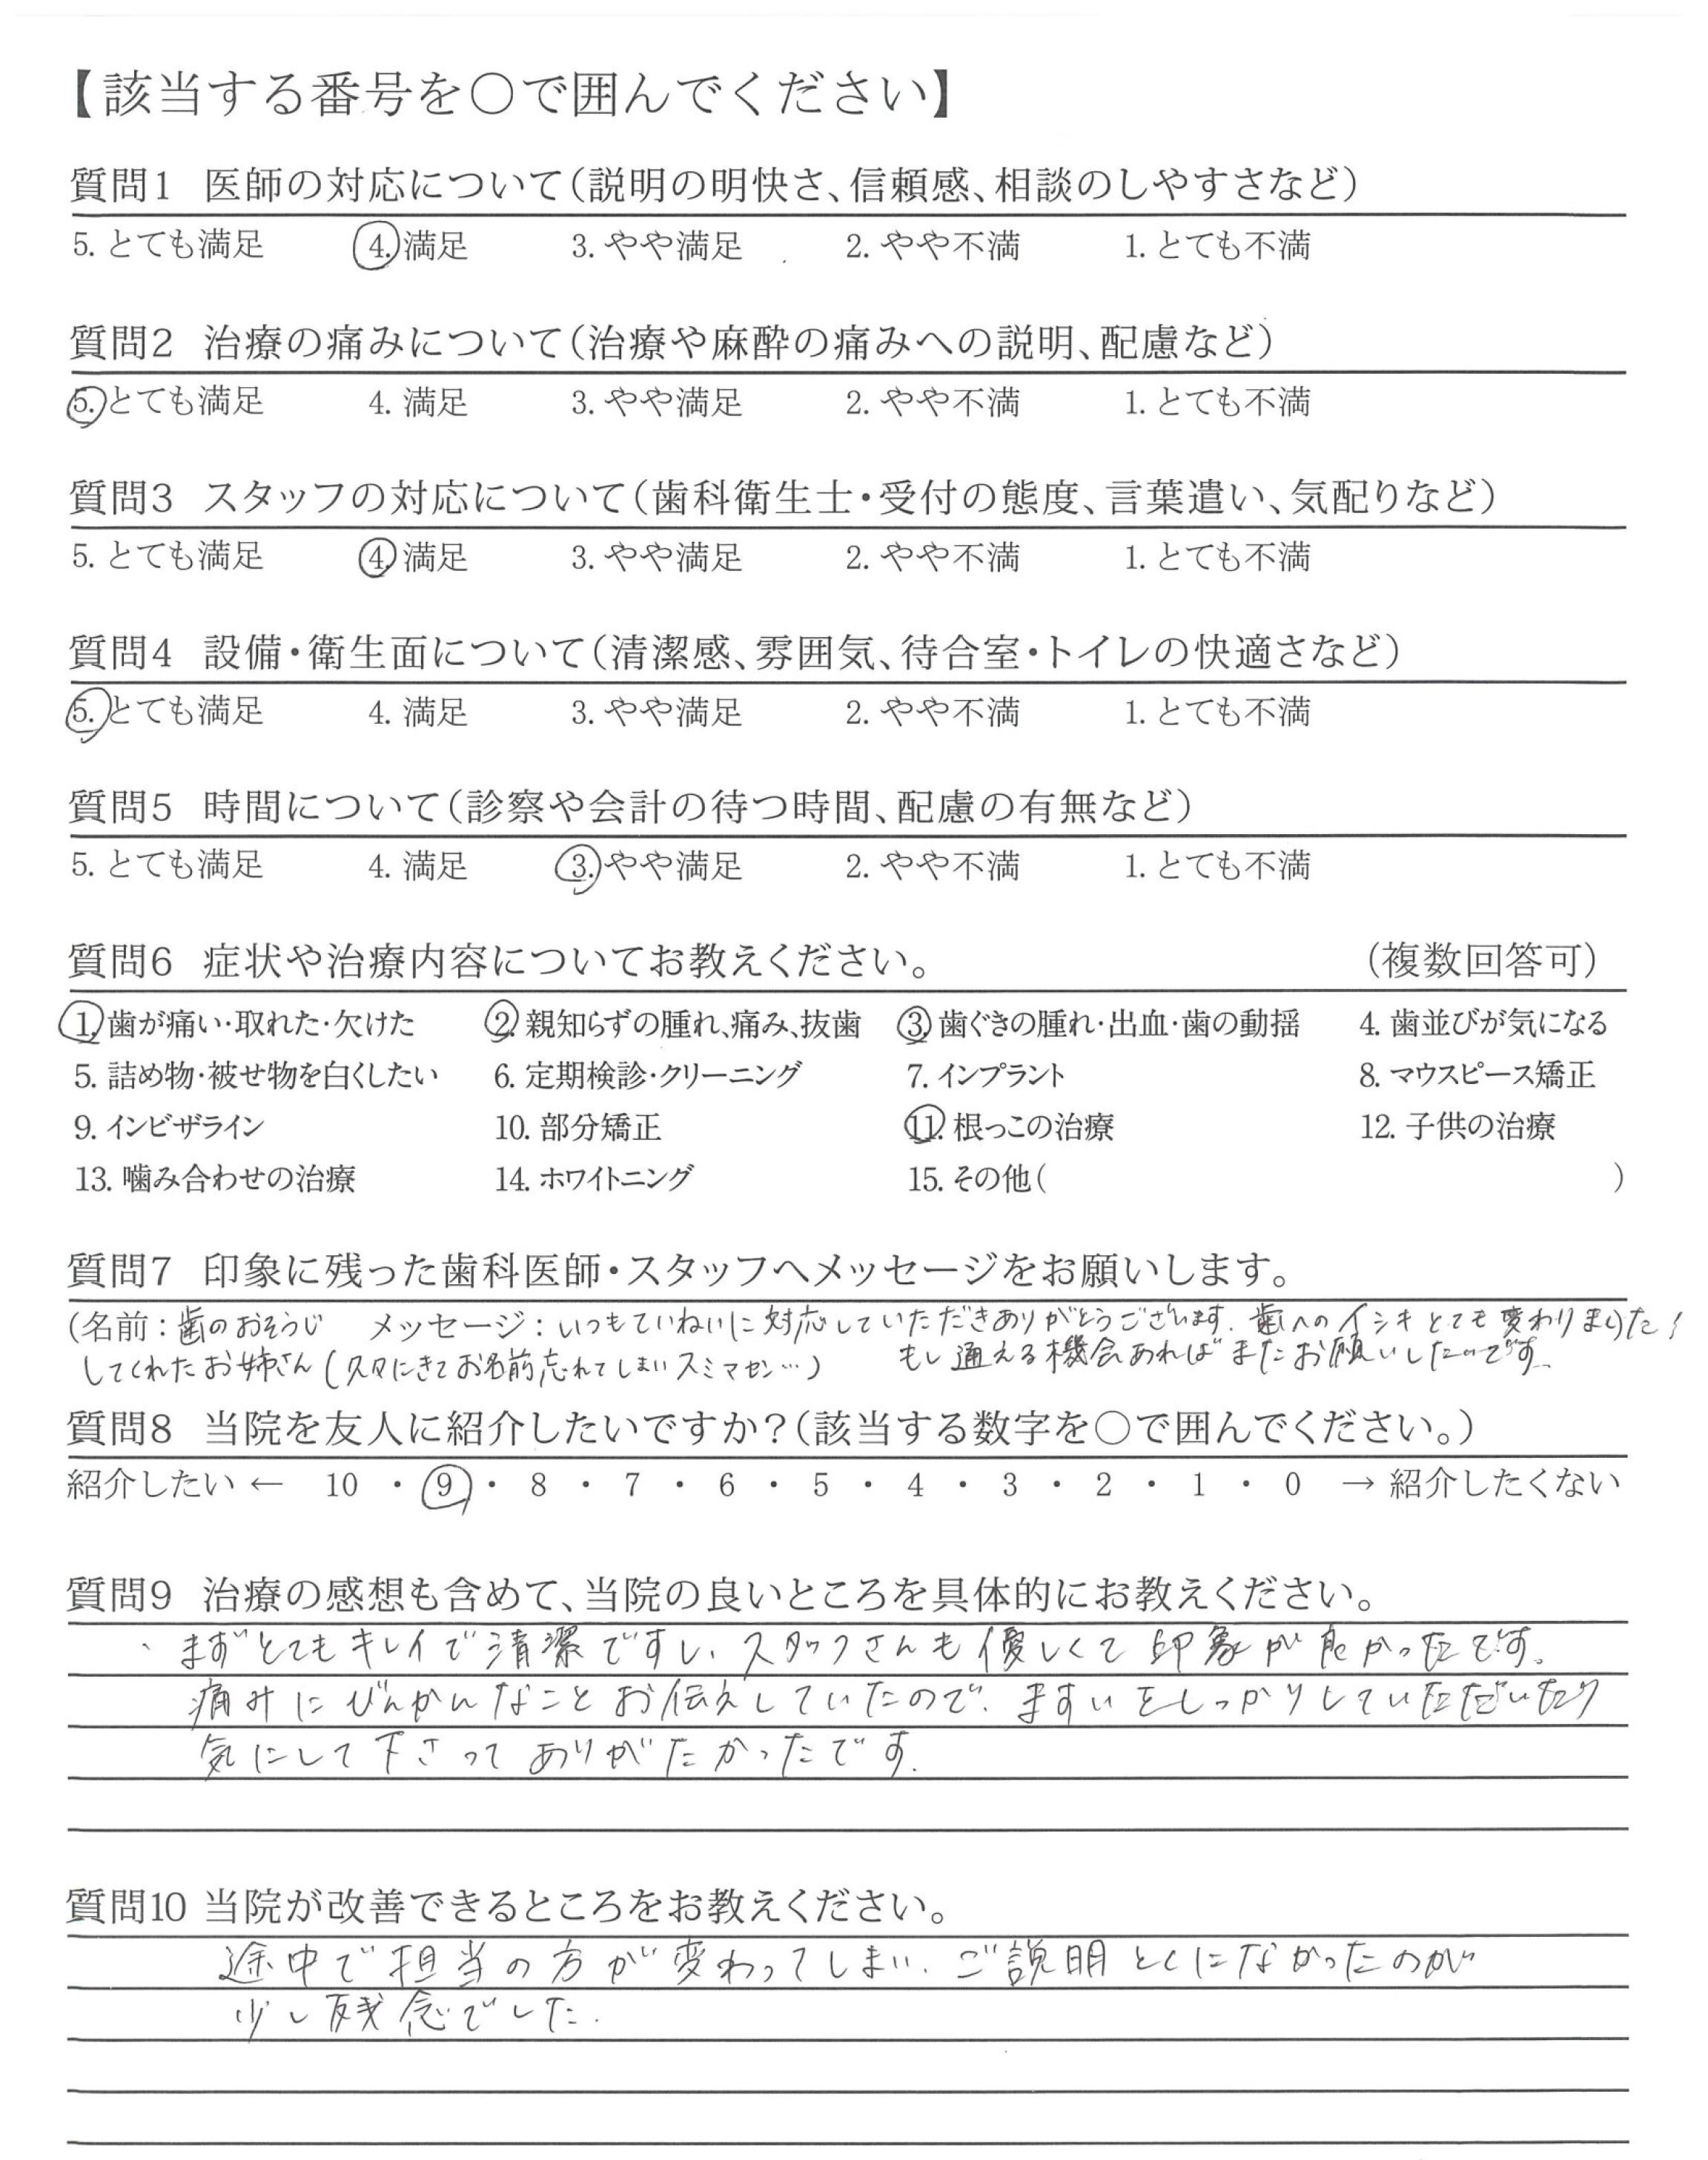 【該当する番号を○で囲んでください】
質問1 医師の対応について(説明の明快さ、信頼感、相談のしやすさなど)
5. とても満足 4. 満足 3. やや満足 2. やや不満 1. とても不満
質問2 治療の痛みについて(治療や麻酔の痛みへの説明、配慮など)
5. とても満足 4. 満足 3. やや満足 2. やや不満 1. とても不満
質問3 スタッフの対応について(歯科衛生士・受付の態度、言葉遣い、気配りなど)
5. とても満足 4. 満足 3. やや満足 2. やや不満 1. とても不満
質問4 設備・衛生面について(清潔感、雰囲気、待合室・トイレの快適さなど)
5. とても満足 4. 満足 3. やや満足 2. やや不満 1. とても不満
質問5 時間について(診察や会計の待つ時間、配慮の有無など)
5. とても満足 4. 満足 3. やや満足 2. やや不満 1. とても不満
質問6 症状や治療内容についてお教えください。 (複数回答可)
1. 歯が痛い・取れた・欠けた 2. 親知らずの腫れ、痛み、抜歯 3. 歯ぐきの腫れ・出血・歯の動揺 4. 歯並びが気になる
5. 詰め物・被せ物を白くしたい 6. 定期検診・クリーニング 7. インプラント 8. マウスピース矯正
9. インビザライン 10. 部分矯正 11. 根っこの治療 12. 子供の治療
13. 噛み合わせの治療 14. ホワイトニング 15. その他( )
質問7 印象に残った歯科医師・スタッフへメッセージをお願いします。
(名前:歯のおそうじ メッセージ:いつもていねいに対応していただきありがとうございます。歯へのイシキとても変わりました!
してくれたお姉さん(久々にきてお名前忘れてしまいスミマセン…) もし通える機会あればまたお願いしたいです。
質問8 当院を友人に紹介したいですか?(該当する数字を○で囲んでください。)
紹介したい ← 10 ・ 9 ・ 8 ・ 7 ・ 6 ・ 5 ・ 4 ・ 3 ・ 2 ・ 1 ・ 0 → 紹介したくない
質問9 治療の感想も含めて、当院の良いところを具体的にお教えください。
、まずとてもキレイで清潔ですし、スタッフさんも優しくて印象が良かったです。
痛みにびんかんなことお伝えしていたので、ますいをしっかりしていただいたり
気にして下さってありがたかったです。
質問10 当院が改善できるところをお教えください。
途中で担当の方が変わってしまい、ご説明とくになかったのが
少し残念でした。